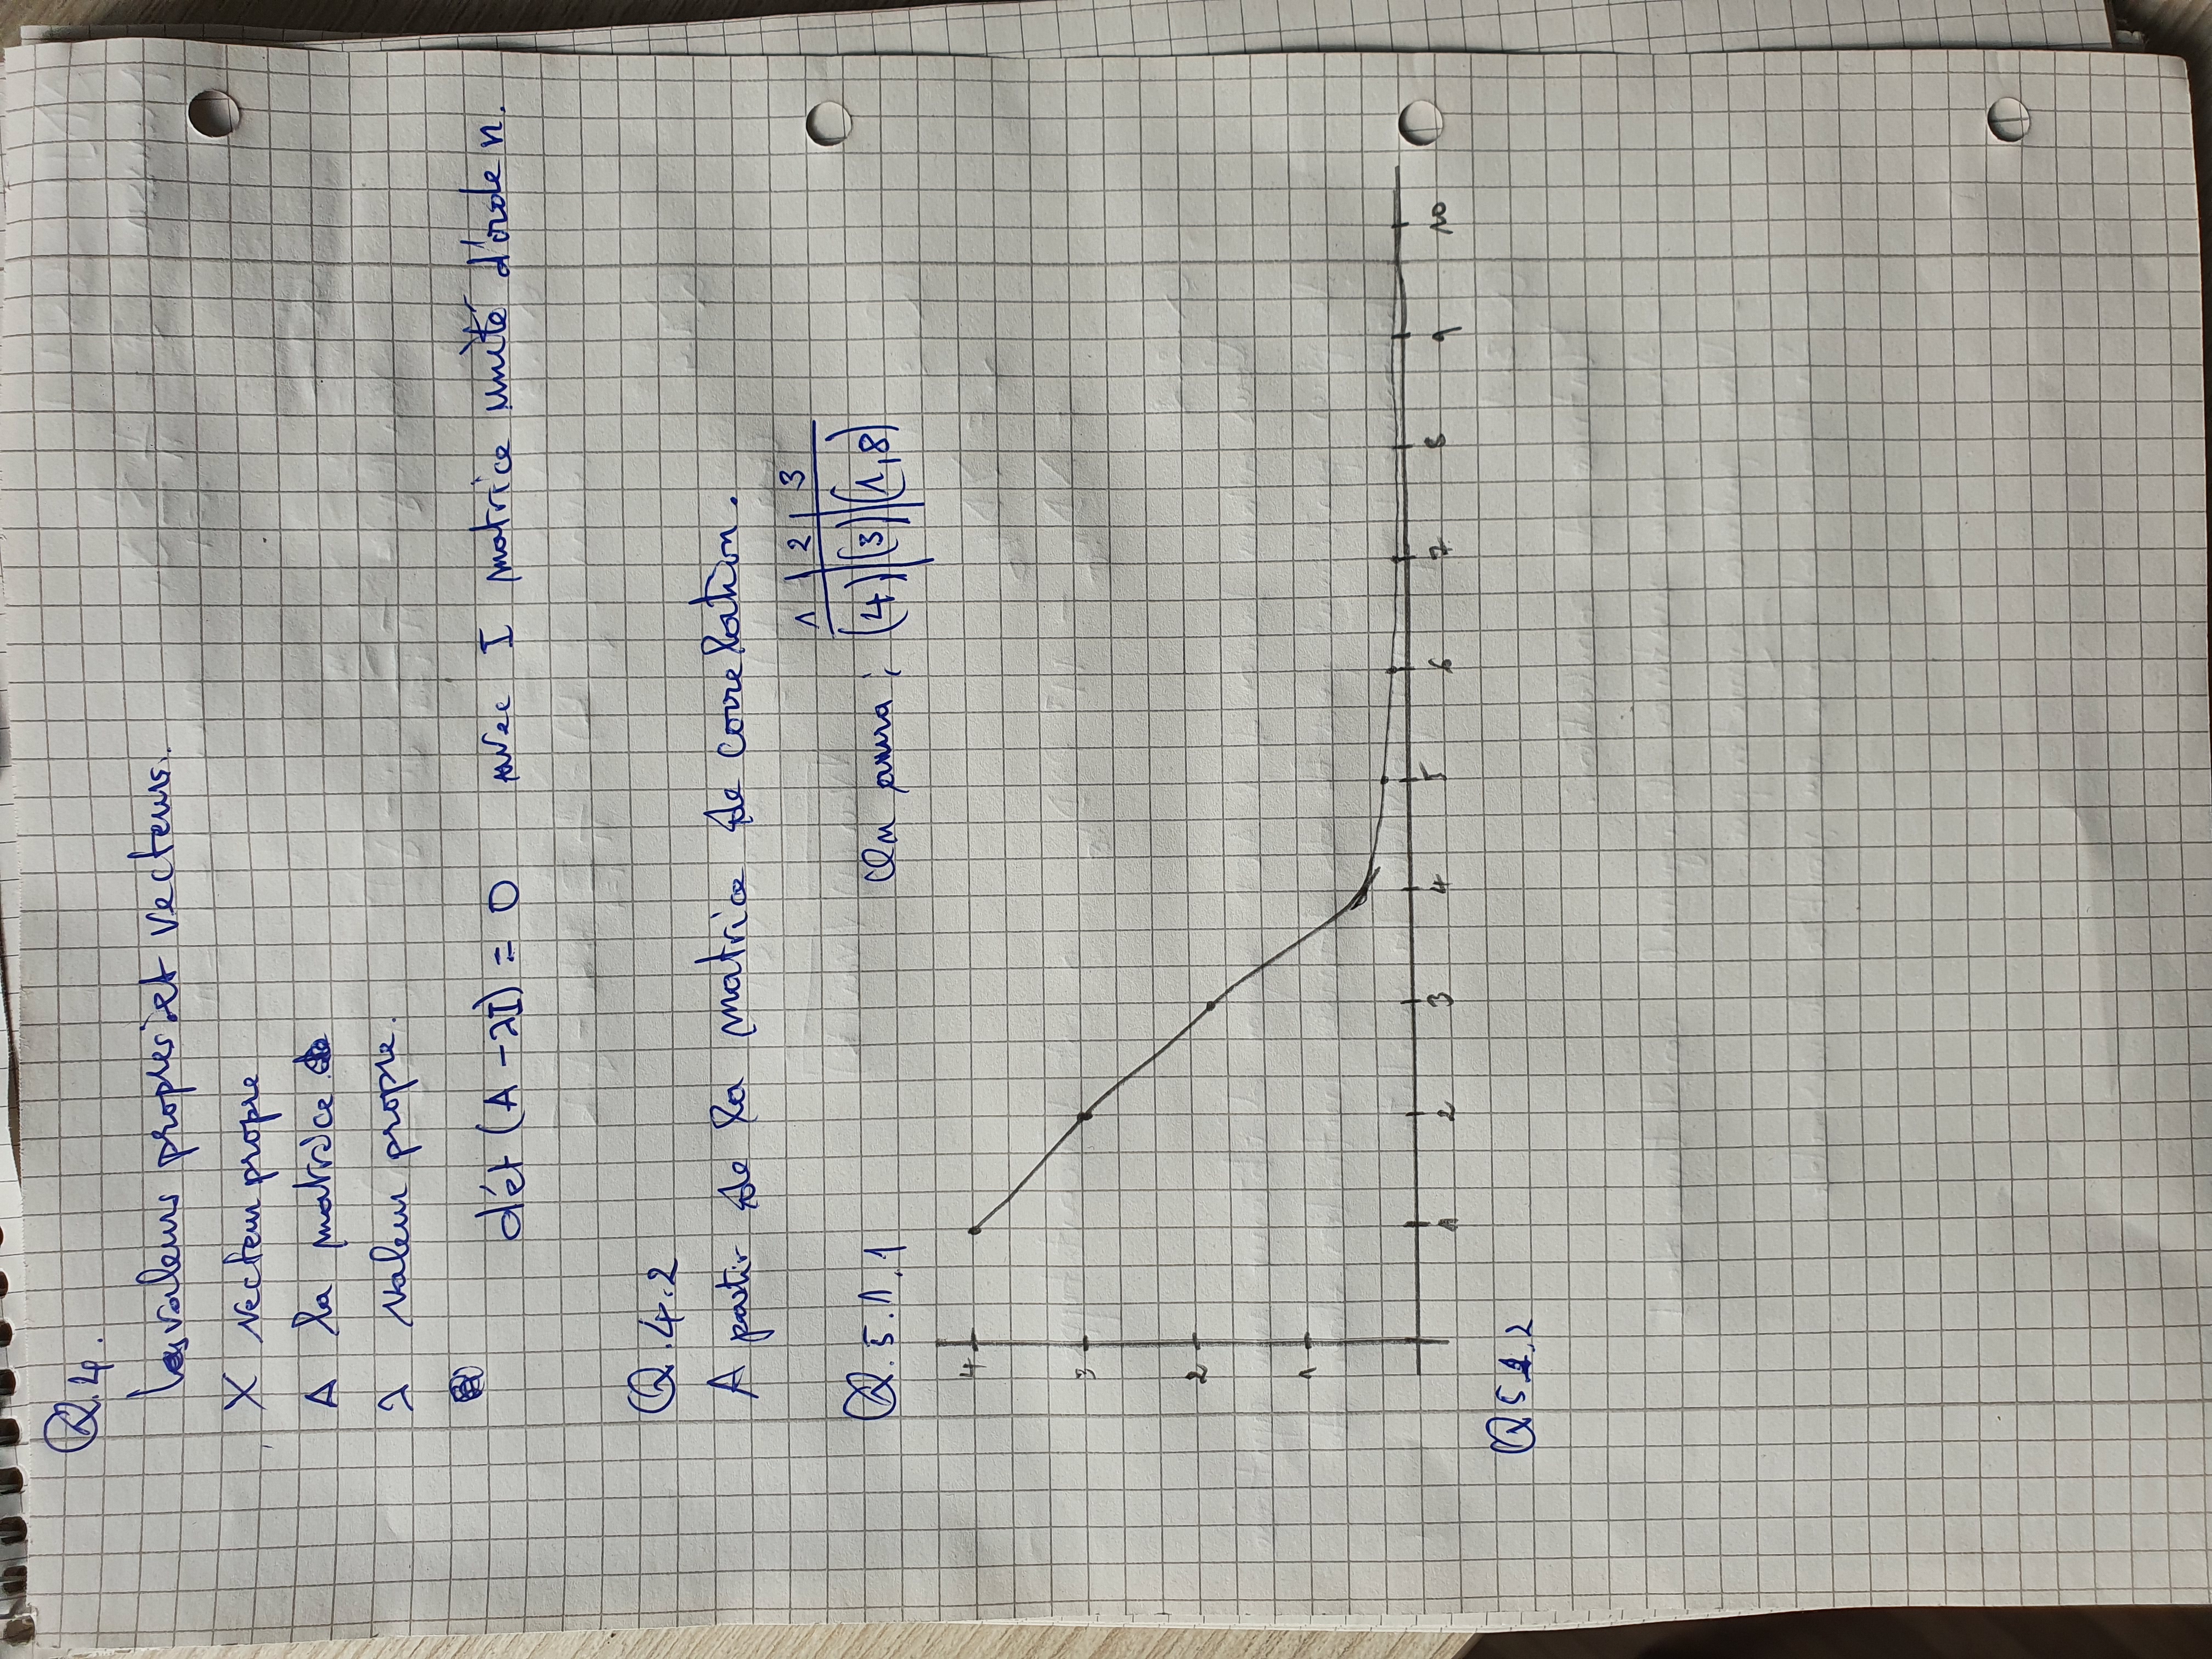 Q.4.
Les valeurs propres et vecteurs.
X vecteur propre
A la matrice
λ valeur propre.
dét (A - λI) = 0 avec I matrice unité d'orde n.
Q.4.2
A partir de la matrice de correlation.
1 2 3
Q.5.1.1 On aura : (4) (3) (1,8)
4
3
2
1
1 2 3 4 5 6 7 8 9 10
Q5 1.2